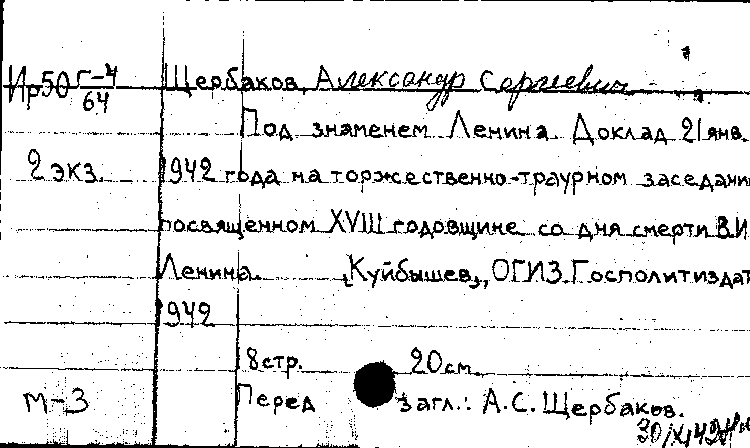 Ир50 Г-4/64 Щербаков, Александр Сергеевич
Под знаменем Ленина. Доклад 21 янв.
2 экз. 1942 года на торжественно-траурном заседани
посвященном XVIII годовщине со дня смерти В.И
Ленина. [Куйбышев], ОГИЗ. Госполитиздат
1942
8 стр. 20 см.
М-3 Перед загл.: А.С. Щербаков.